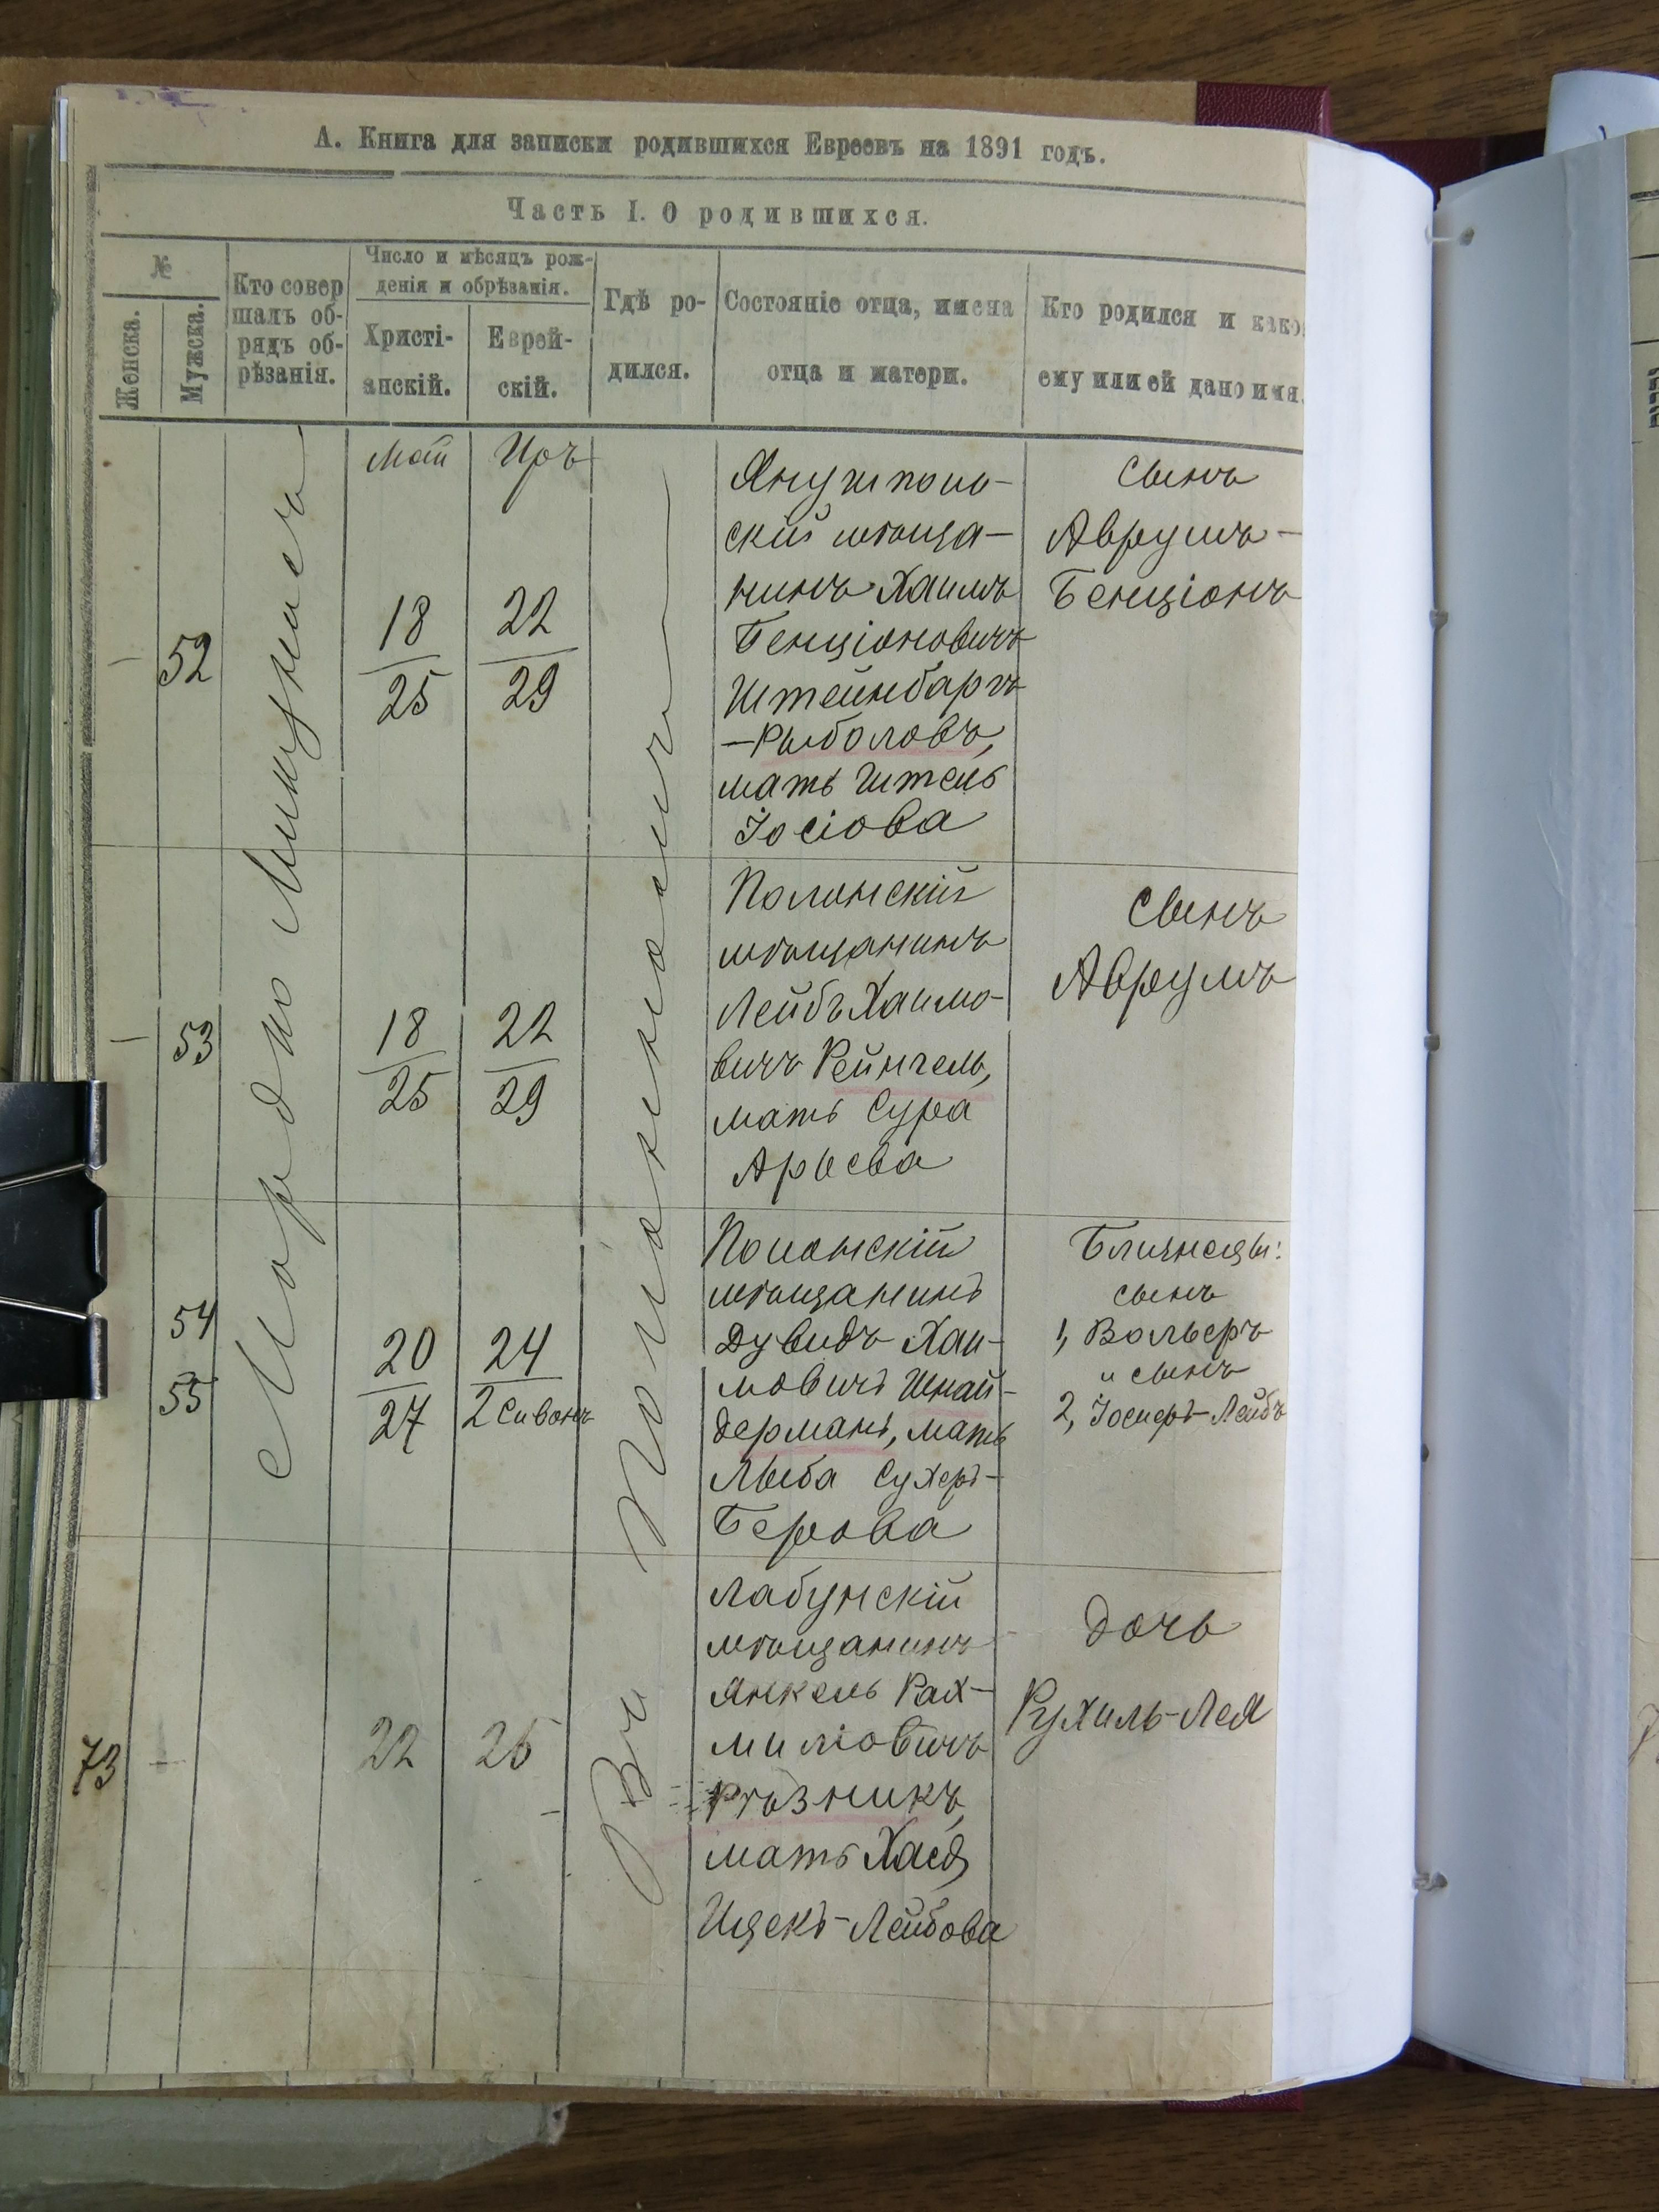 А. Книга для записки родившихся Евреевъ на 1891 годъ.
Часть I. О родившихся.
№
Женска.
Мужска.
Кто совер
шалъ об-
рядъ об-
рѣзанія.
Число и мѣсяцъ рож-
денія и обрѣзанія.
Христі-
анскій.
Еврей-
скій.
Гдѣ ро-
дился.
Состояніе отца, имена
отца и матери.
Кто родился и како
ему или ей дано имя.
Мордко
Въ Полонномъ
Май
Иръ
—
52
18
25
22
29
Янушполь-
скій мѣща-
нинъ Хаимъ
Бенціоновичъ
Штейнбаргъ
-Рыболовъ,
мать Итель
Іосіова
сынъ
Аврумъ-
Бенціонъ
—
53
18
25
22
29
Полонскій
мѣщанинъ
Лейбъ Хаимо-
вичъ Рейнгель,
мать Сура
Арьева
сынъ
Аврумъ
54
55
20
27
24
2 Сивонъ
Полонскій
мѣщанинъ
Дувидъ Хаи-
мовичъ Шнай-
дерманъ, мать
Лыба Сухеръ-
Берова
Близнецы:
сынъ
1, Вольфъ
и сынъ
2, Іосифъ-Лейбъ
73
—
22
26
Лабунскій
мѣщанинъ
Янкель Рах-
миловичъ
Рѣзникъ,
мать Хася
Ицекъ-Лейбова
дочь
Рухиль-Лея